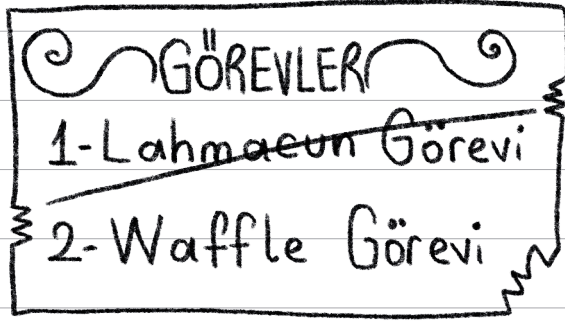 GÖREVLER
1-Lahmacun Görevi
2-Waffle Görevi